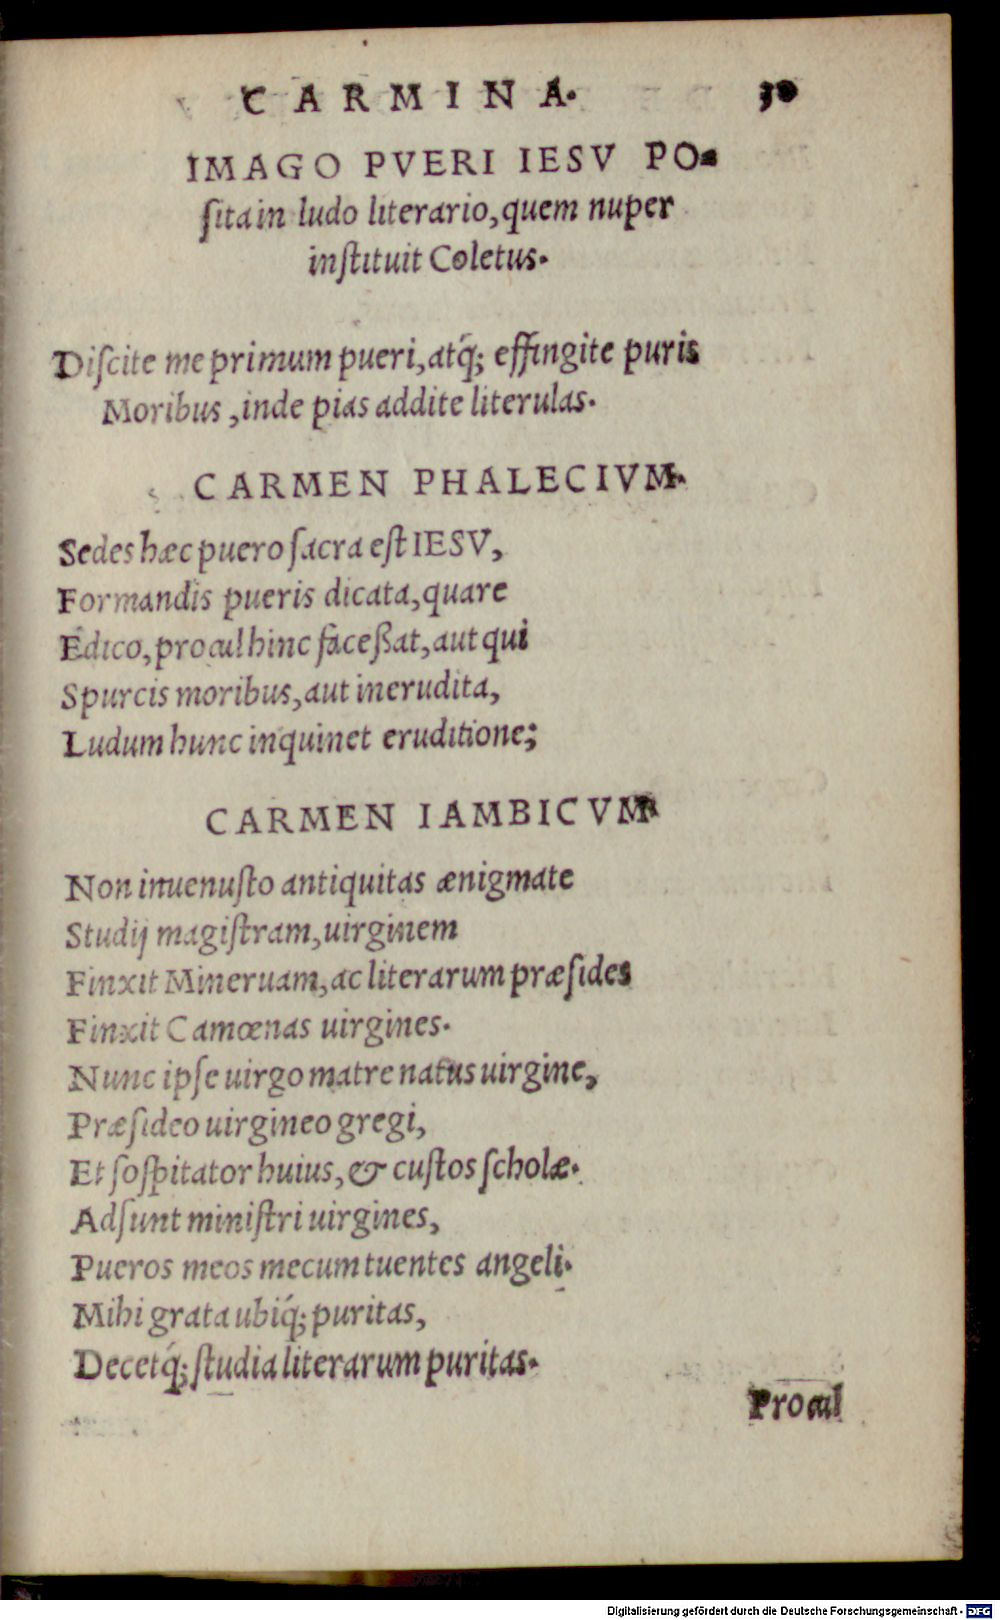 CARMINA. 30
IMAGO PVERI IESV PO-
ſita in ludo literario, quem nuper
inſtituit Coletus.
Diſcite me primum pueri, atq́; effingite puris
Moribus, inde pias addite literulas.
CARMEN PHALECIVM.
Sedes hæc puero ſacra eſt IESV,
Formandis pueris dicata, quare
Edico, procul hinc faceßat, aut qui
Spurcis moribus, aut inerudita,
Ludum hunc inquinet eruditione;
CARMEN IAMBICVM
Non inuenuſto antiquitas ænigmate
Studij magiſtram, uirginem
Finxit Mineruam, ac literarum præſides
Finxit Camœnas uirgines.
Nunc ipſe uirgo matre natus uirgine,
Præſideo uirgineo gregi,
Et ſoſpitator huius, & cuſtos ſcholæ.
Adſunt miniſtri uirgines,
Pueros meos mecum tuentes angeli.
Mihi grata ubiq́; puritas,
Decetq́; ſtudia literarum puritas.
Procul
Digitalisierung gefördert durch die Deutsche Forschungsgemeinschaft - DFG